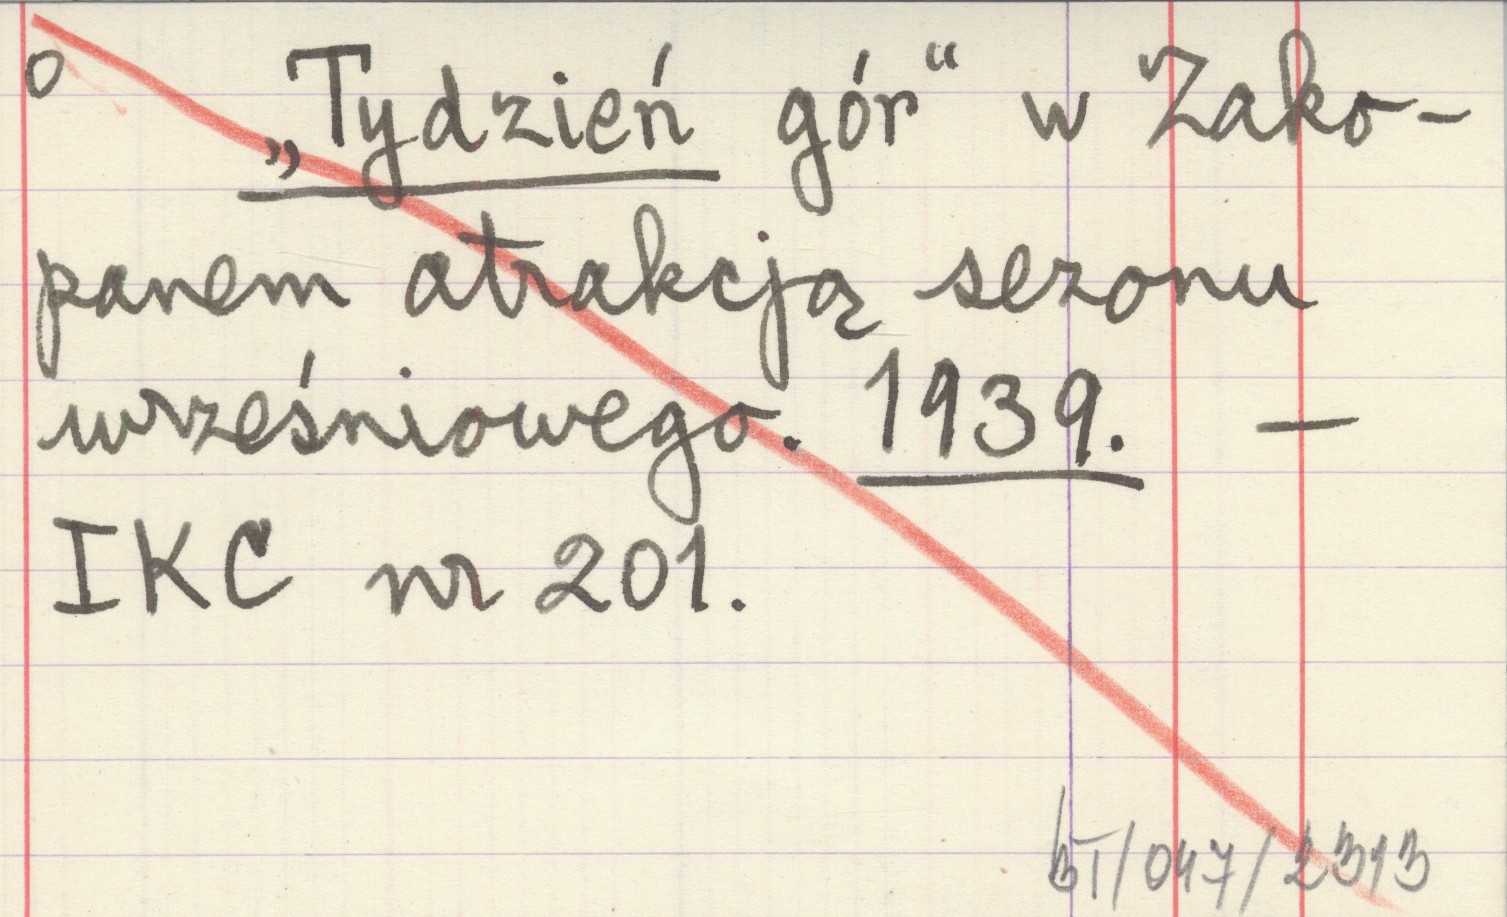 o „Tydzień gór“ w Zako-
panem atrakcją sezonu
wrześniowego. 1939. —
IKC nr 201.
bT/047/2313